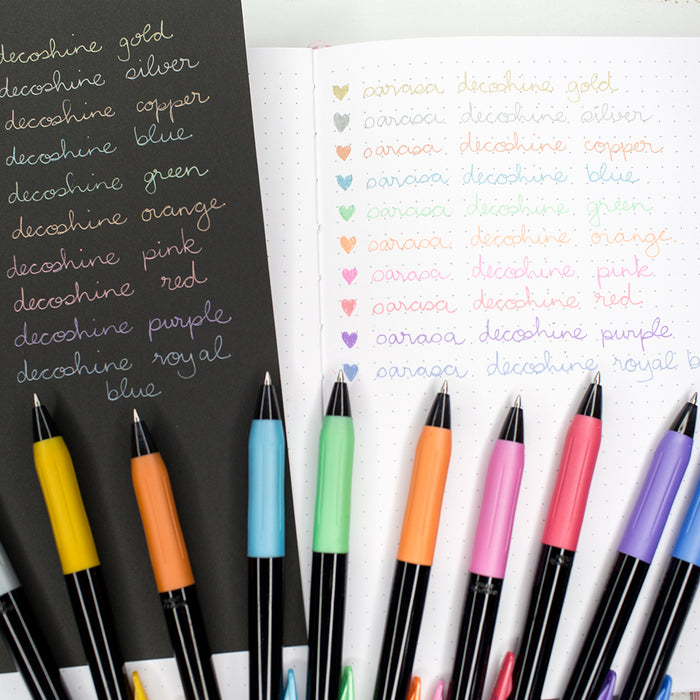 decoshine gold
decoshine silver
decoshine copper
decoshine blue
decoshine green
decoshine orange
decoshine pink
decoshine red
decoshine purple
decoshine royal
blue
sarasa decoshine gold
sarasa decoshine silver
sarasa decoshine copper.
sarasa decoshine blue
sarasa decoshine green
sarasa decoshine orange.
sarasa decoshine pink.
sarasa decoshine red.
sarasa decoshine purple.
sarasa decoshine royal b